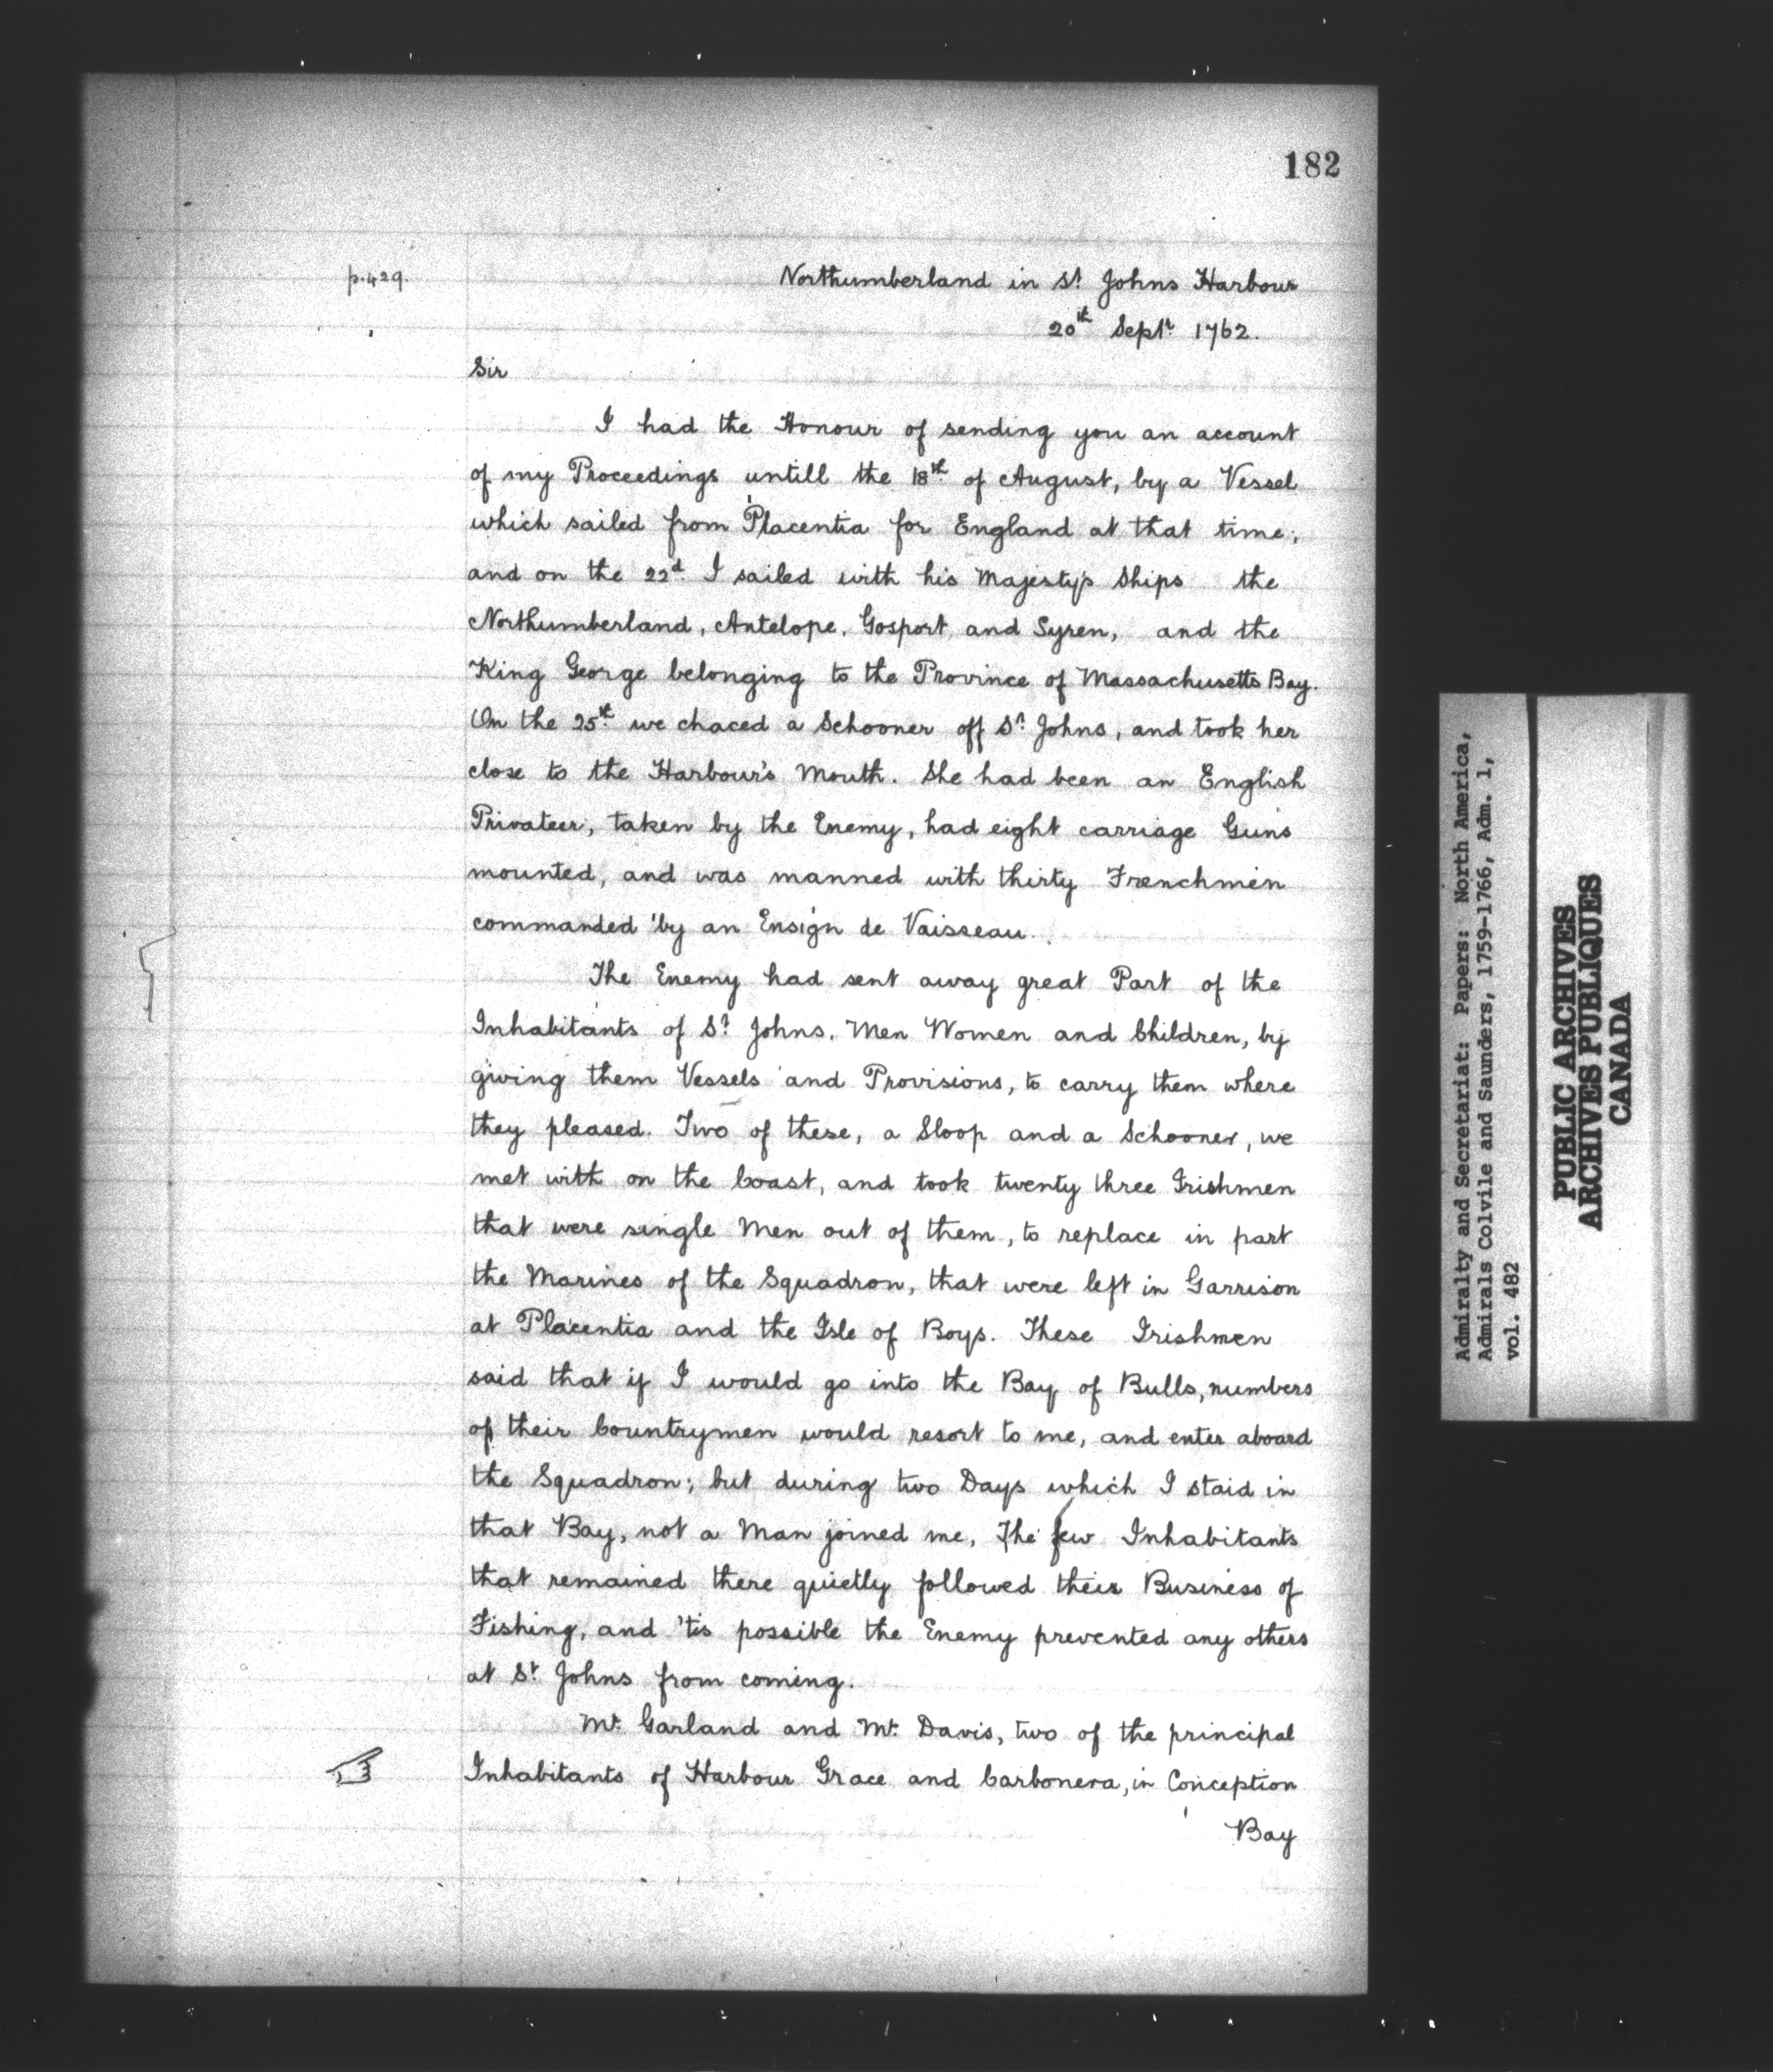 182
p.429.
Northumberland in St Johns Harbour
20th Septr 1762.
Sir
I had the Honour of sending you an account
of my Proceedings untill the 18th of August, by a Vessel
which sailed from Placentia for England at that time;
and on the 22d I sailed with his Majesty's Ships the
Northumberland, Antelope, Gosport and Syren, and the
King George belonging to the Province of Massachusetts Bay.
On the 25th we chaced a Schooner off St Johns, and took her
close to the Harbour's Mouth. She had been an English
Privateer, taken by the Enemy, had eight carriage Guns
mounted, and was manned with thirty Frenchmen
commanded by an Ensign de Vaisseau.
The Enemy had sent away great Part of the
Inhabitants of St Johns, Men Women and Children, by
giving them Vessels and Provisions, to carry them where
they pleased. Two of these, a Sloop and a Schooner, we
met with on the Coast, and took twenty three Irishmen
that were single Men out of them, to replace in part
the Marines of the Squadron, that were left in Garrison
at Placentia and the Isle of Boys. These Irishmen
said that if I would go into the Bay of Bulls, numbers
of their Countrymen would resort to me, and enter aboard
the Squadron; but during two Days which I staid in
that Bay, not a Man joined me, The few Inhabitants
that remained there quietly followed their Business of
Fishing, and 'tis possible the Enemy prevented any others
at St Johns from coming.
Mr. Garland and Mr. Davis, two of the principal
Inhabitants of Harbour Grace and Carbonera, in Conception
Bay
Admiralty and Secretariat: Papers: North America,
Admirals Colvile and Saunders, 1759-1766, Adm. 1,
vol. 482
PUBLIC ARCHIVES
ARCHIVES PUBLIQUES
CANADA